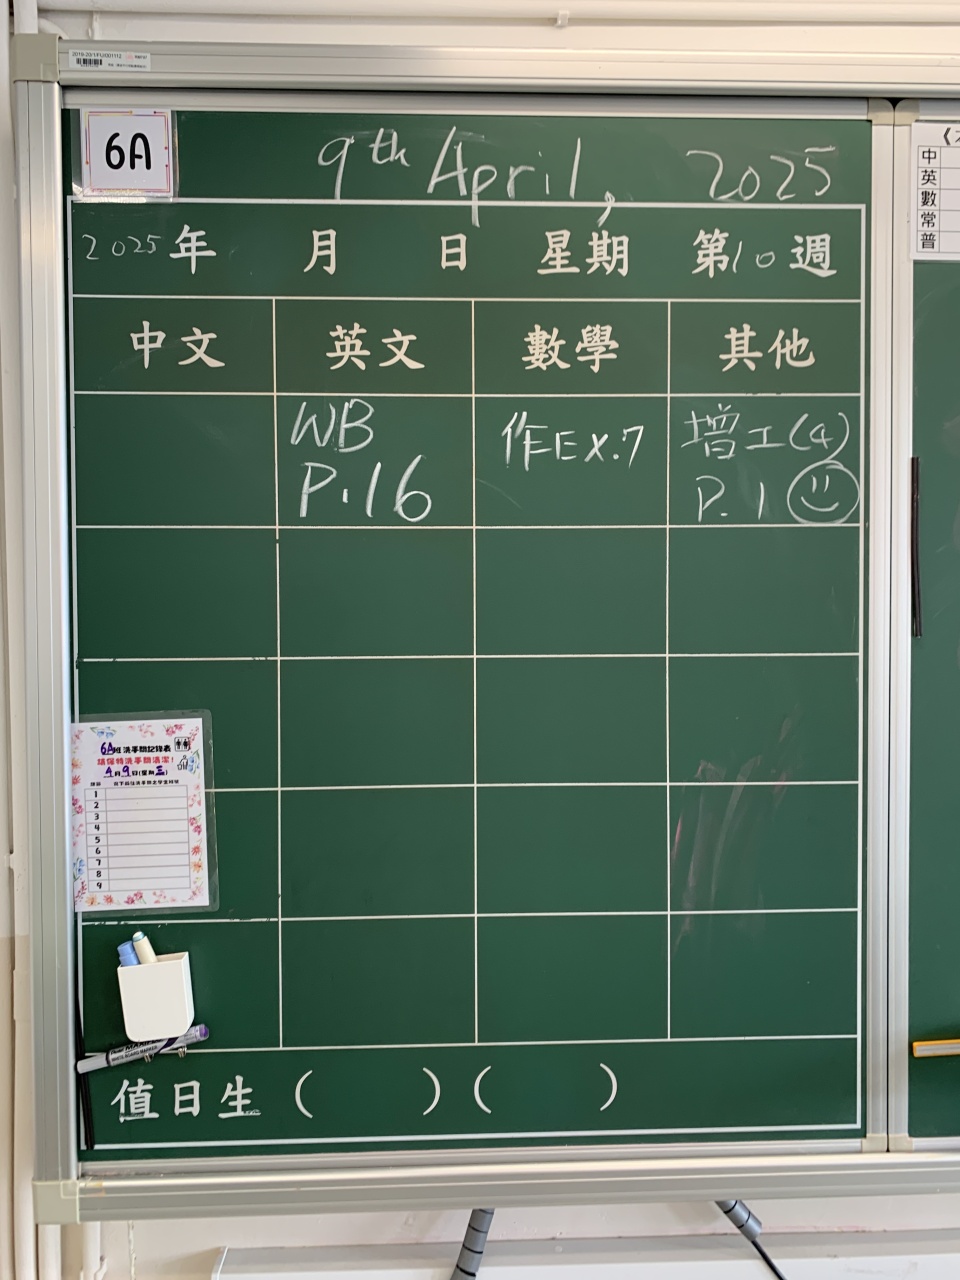 2019-20/1/FU/001112
6A
9th April, 2025
2025年 月 日 星期 第10週
中文 英文 數學 其他
WB
P.16
作Ex.7
增工(4)
P.1
6A班洗手間記錄表
請保持洗手間清潔!
4月9日(星期三)
1
2
3
4
5
6
7
8
9
值日生 ( ) ( )
中
英
數
常
普